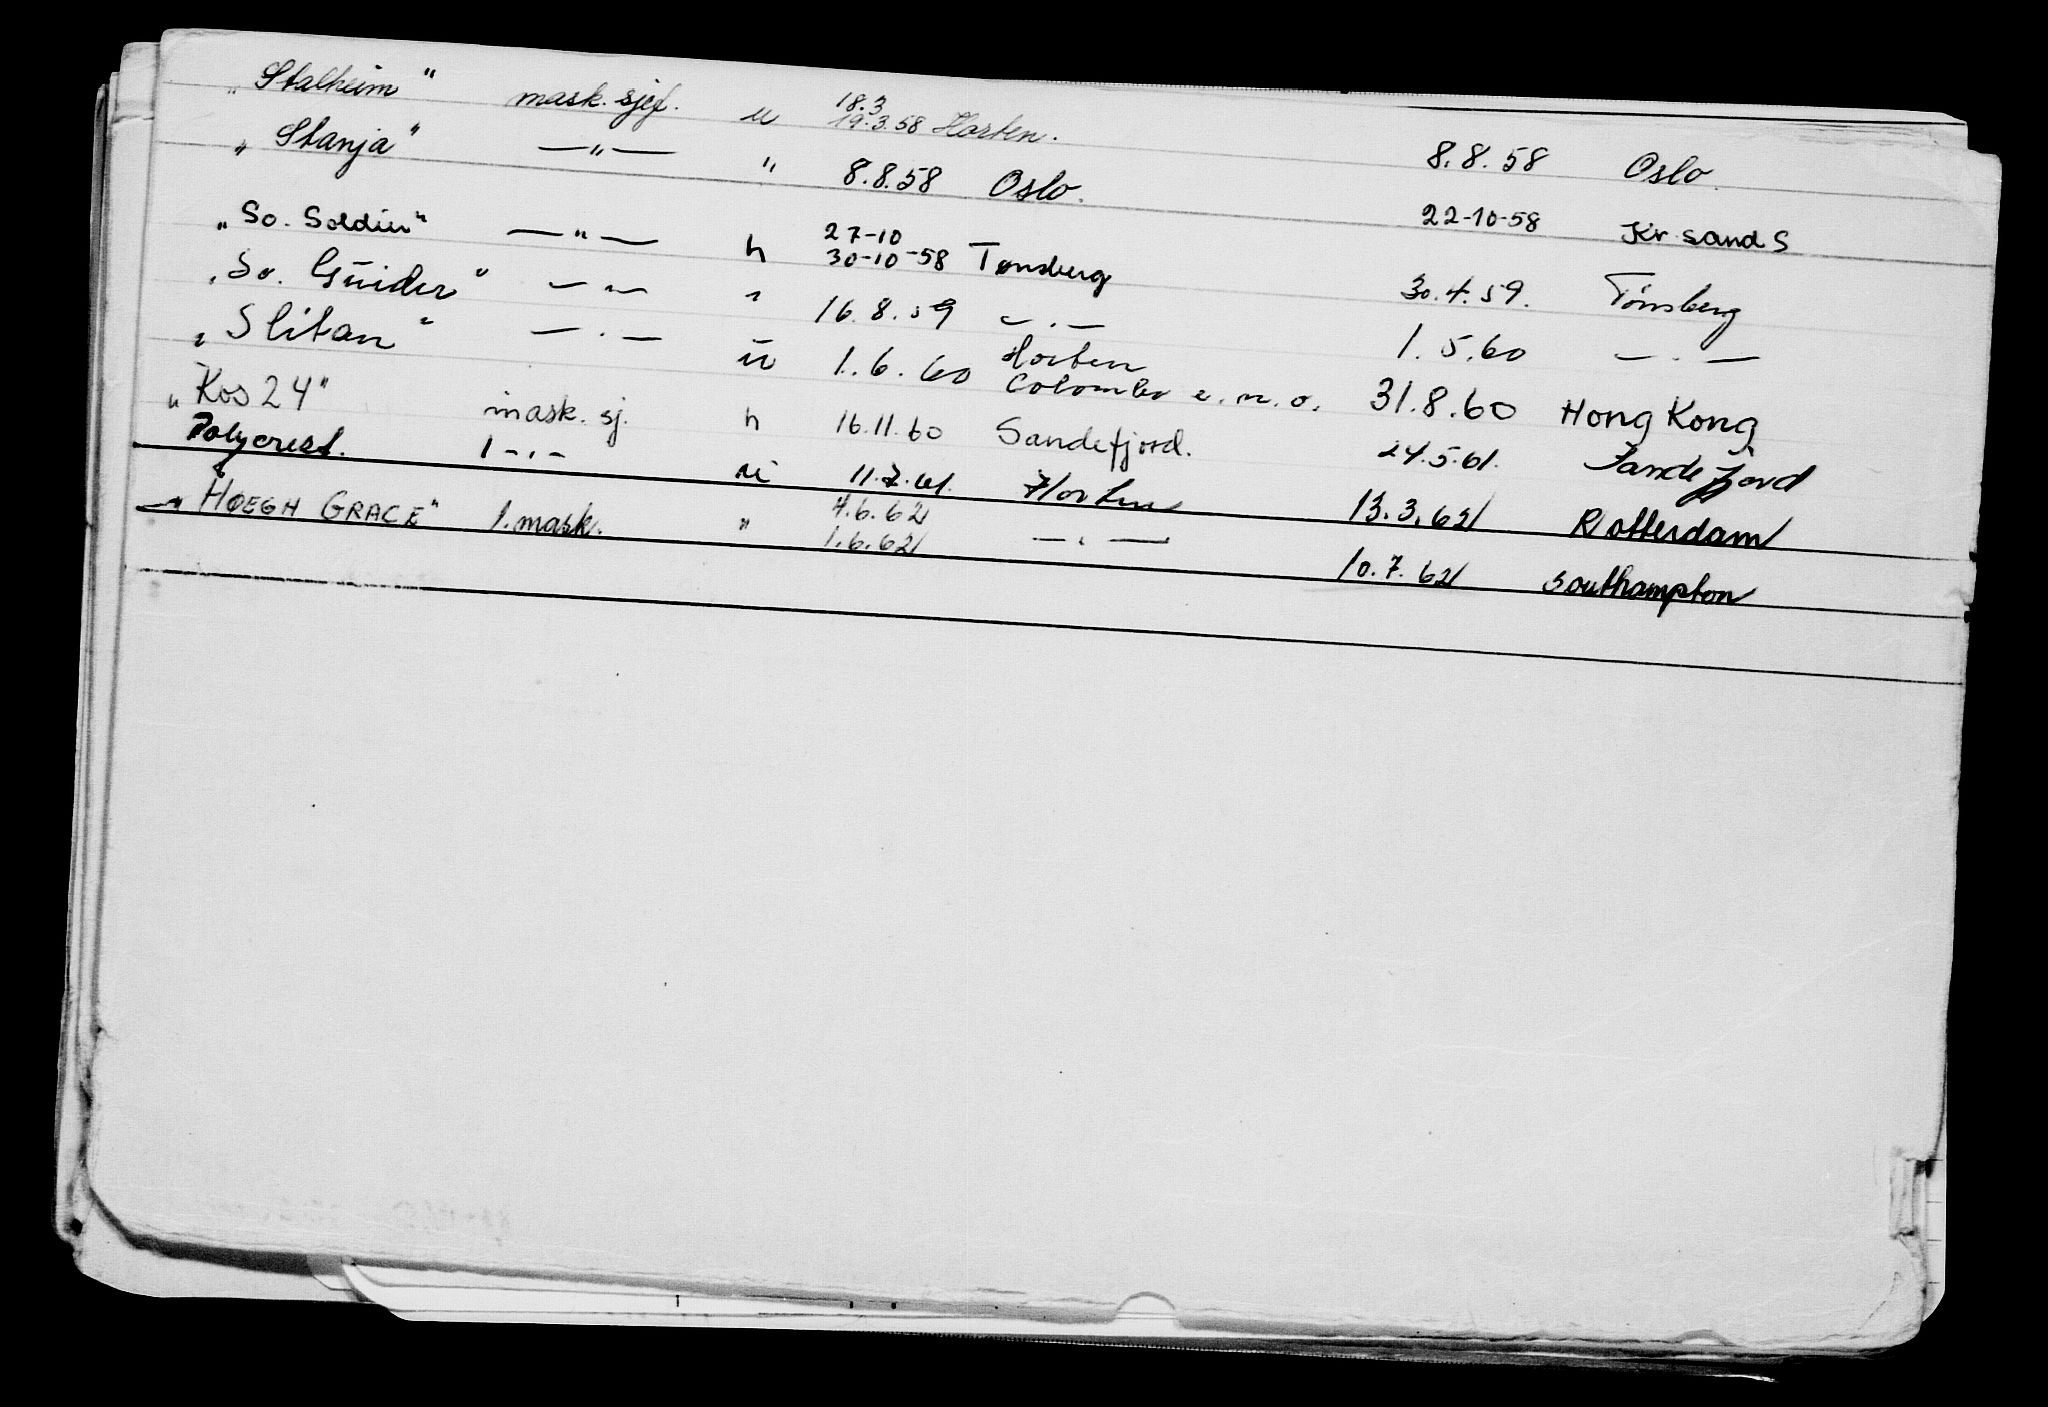 „Stalheim" mask. sjef. u 18.3 19.3.58 Horten. 8.8.58 Oslo.
„Stanja" —"— " 8.8.58 Oslo. 22-10-58 Kr sand S
„So. Soldier" —"— h 27-10 30-10-58 Tønsberg 30.4.59. Tønsberg
„So. Guider" —"— " 16.8.59 —.— 1.5.60 —.—
„Slitan" —.— u 1.6.60 Horten Colombo e.m.o. 31.8.60 Hong Kong
„Kos 24" mask. sj. h 16.11.60 Sandefjord. 24.5.61. Sandefjord
Polycrest. 1 -.- u 11.7.61. Horten 13.3.62 Rotterdam
„HØEGH GRACE" 1. mask. " 4.6.62 1.6.62 —.— 10.7.62 Southampton